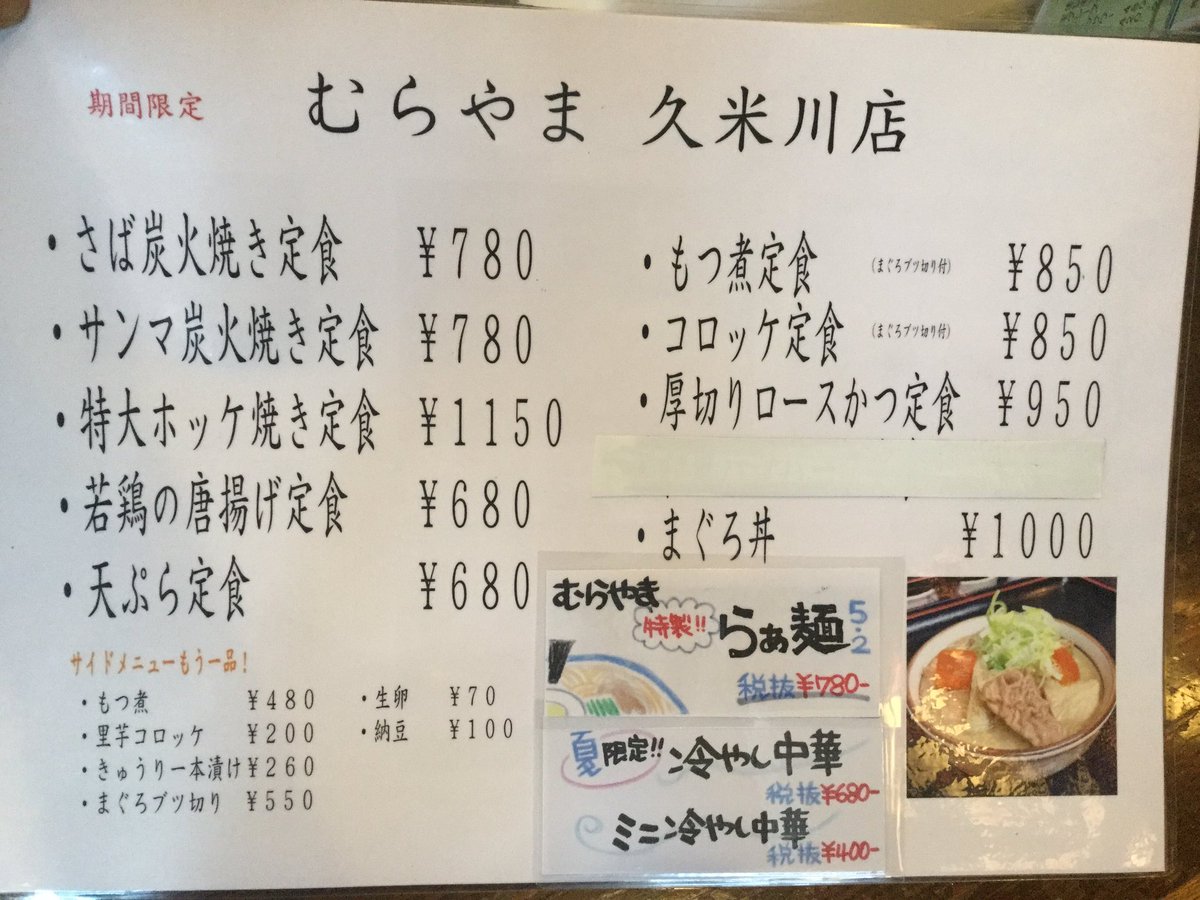 期間限定
むらやま 久米川店
・さば炭火焼き定食 ¥780
・サンマ炭火焼き定食 ¥780
・特大ホッケ焼き定食 ¥1150
・若鶏の唐揚げ定食 ¥680
・天ぷら定食 ¥680
・もつ煮定食 (まぐろブツ切り付) ¥850
・コロッケ定食 (まぐろブツ切り付) ¥850
・厚切りロースかつ定食 ¥950
・まぐろ丼 ¥1000
サイドメニューもう一品!
・もつ煮 ¥480
・里芋コロッケ ¥200
・きゅうり一本漬け ¥260
・まぐろブツ切り ¥550
・生卵 ¥70
・納豆 ¥100
むらやま
特製!! らぁ麺 5.2
税抜¥780-
夏限定!! 冷やし中華
税抜¥680-
ミニ冷やし中華
税抜¥400-